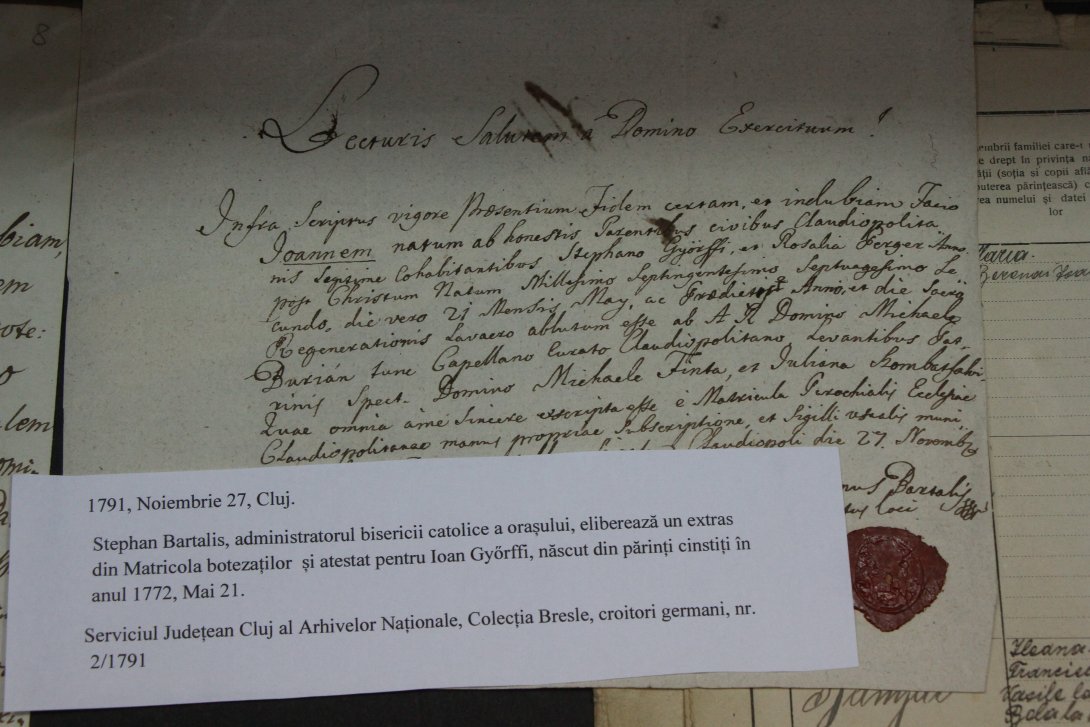 8
Lecturis Salutem a Domino Exercituum!
Infra Scriptus vigore Præsentium Fidem certam, et indubiam Facio
Joannem natum ab honestis Parentibus civibus Claudiopolita
nis Septime Cohabitantibus Stephano Györffi, et Rosalia Berger Anno
post Christum Natum Millesimo Septingentesimo Septuagesimo Se
cundo, die vero 21 Mensis May, ac Anno, et die Sacro
Regenerationis Lavacro ablutum esse ab A R Domino Michaele
Burián tunc Capellano Curato Claudiopolitano Levantibus Pat-
rinis Spect. Domino Michaele Finta, et Juliana
Quae omnia a me Sincere exscripta esse e Matricula Parochialis Ecclesiae
Claudiopolitanae manus propriae Subscriptione, et Sigilli usualis muni
Claudiopoli die 27 Novembr
Bartalis
loci
1791, Noiembrie 27, Cluj.
Stephan Bartalis, administratorul bisericii catolice a orașului, eliberează un extras
din Matricola botezaților și atestat pentru Ioan Győrffi, născut din părinți cinstiți în
anul 1772, Mai 21.
Serviciul Județean Cluj al Arhivelor Naționale, Colecția Bresle, croitori germani, nr.
2/1791
biam,
em
ote:
lem
embrii familiei care-t
de drept în privința na
ății (soția și copii află
puterea părințească)
rea numelui și datei
lor
Maria
Ileana
Francisc
Vasile